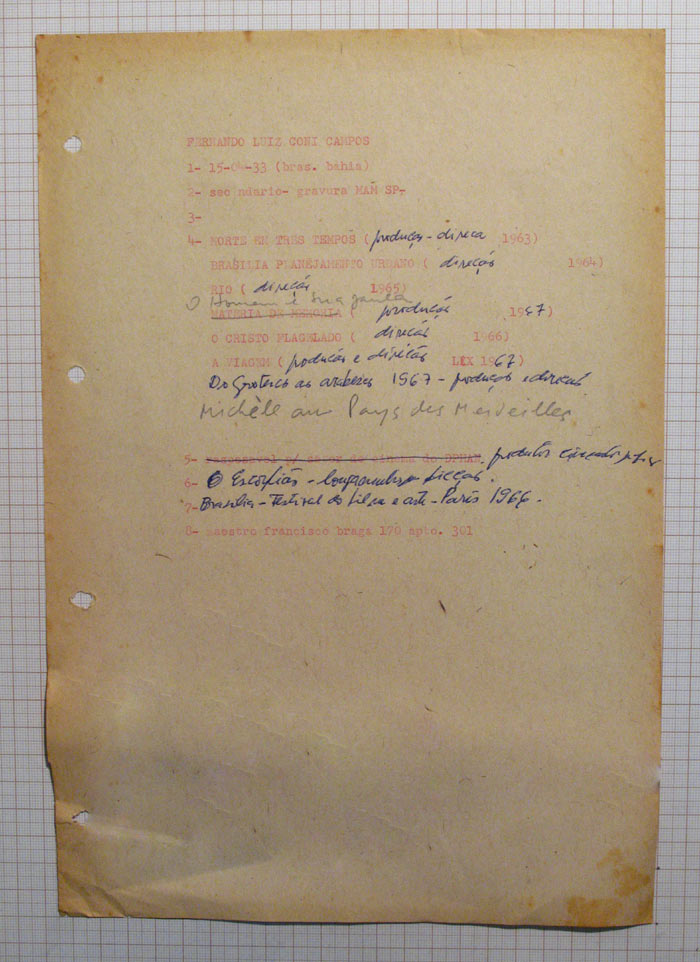 FERNANDO LUIZ CONI CAMPOS
1- 15-04-33 (bras. bahia)
2- sec ndario- gravura MAM SP-
3-
4- MORTE EM TRES TEMPOS ( produção - direca 1963)
BRASILIA PLANEJAMENTO URBANO ( direção 1964)
RIO ( direção 1965)
O Homem e sua janta
MATERIA DE MEMORIA ( produção 1967)
O CRISTO FLAGELADO ( direção 1966)
A VIAGEM ( produção e direção LEX 1967)
Do Grotesco ao arabesco 1967 - produção e direção
Michèle au Pays des Merveilles
5- responsavel p/ setor de cinema do DPHAN. produtor
6- O Escorpião - longametragem ficção.
7- Brasilia - Festival do filme e arte - Paris 1966.
8- maestro francisco braga 170 apto. 301